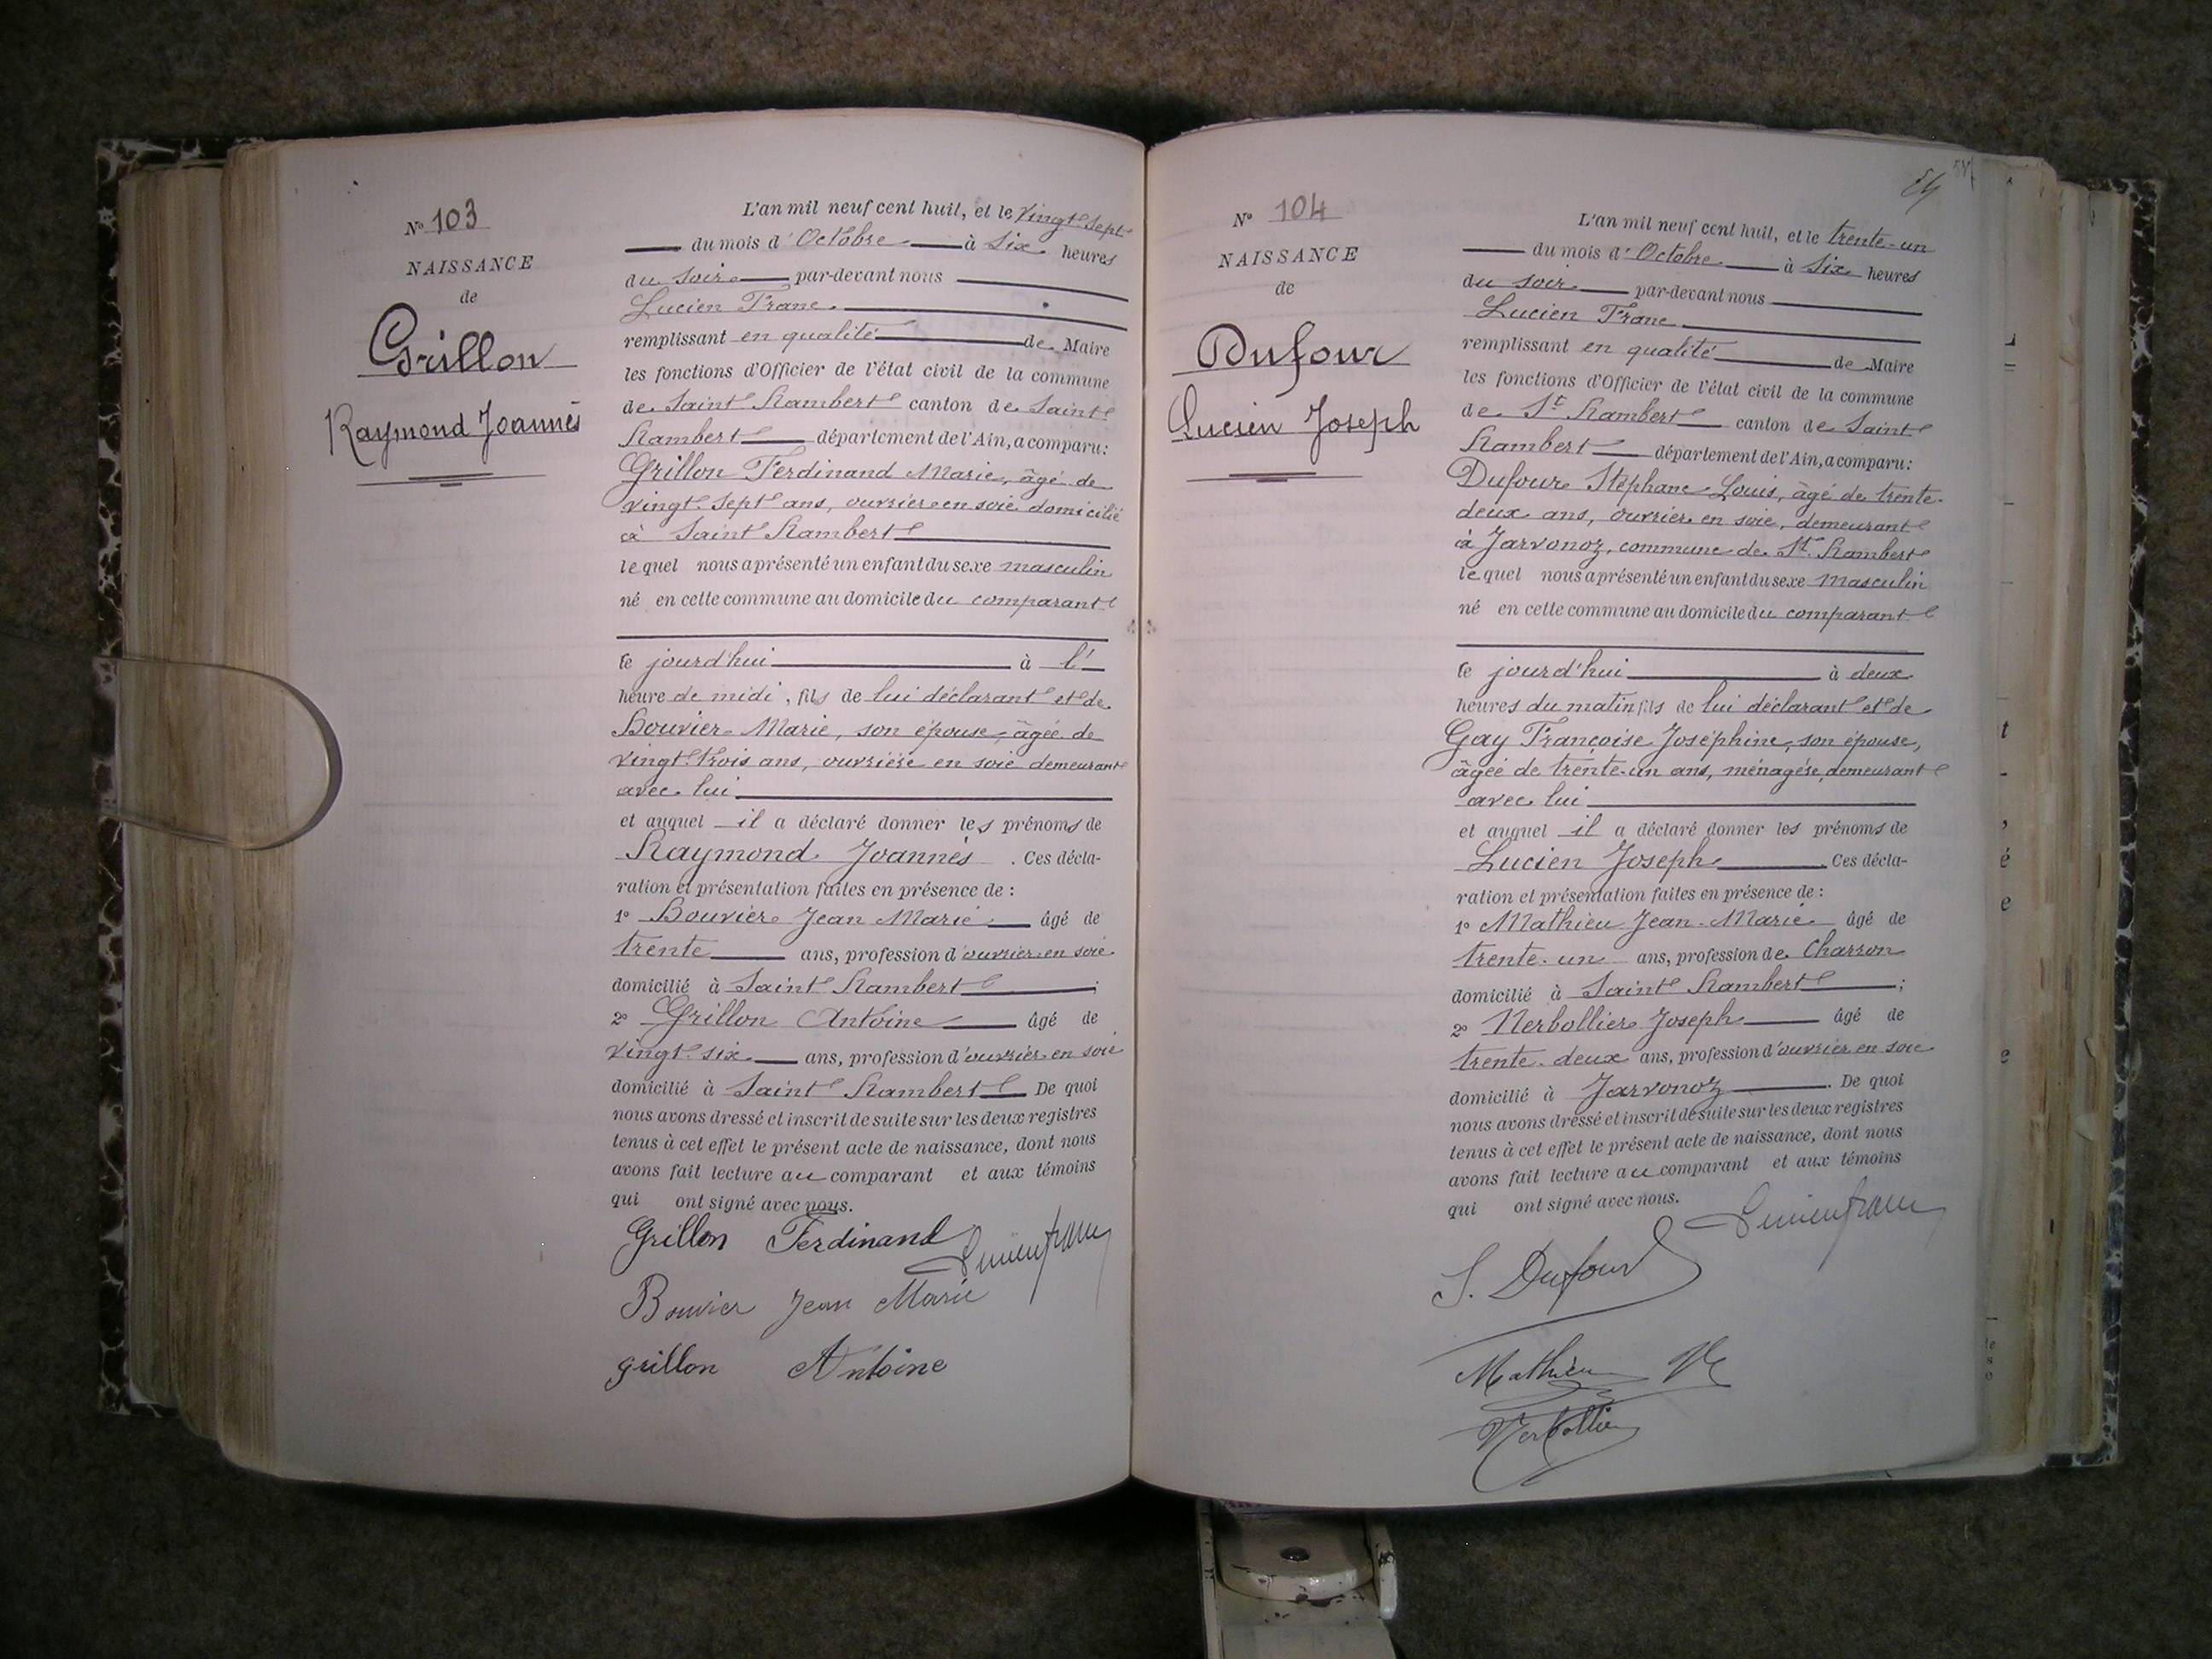 Nº 103
NAISSANCE
de
Grillon
Raymond Joannès
L'an mil neuf cent huit, et le vingt-sept
du mois d'Octobre à six heures
du soir par-devant nous
Lucien Franc
remplissant en qualité de Maire
les fonctions d'Officier de l'état civil de la commune
de Saint Rambert canton de Saint
Rambert département de l'Ain, a comparu:
Grillon Ferdinand Marie, âgé de
vingt-sept ans, ouvrier en soie domicilié
à Saint Rambert
lequel nous a présenté un enfant du sexe masculin
né en cette commune au domicile du comparant
le jourd'hui à l'
heure de midi, fils de lui déclarant et de
Bouvier Marie, son épouse, âgée de
vingt-trois ans, ouvrière en soie demeurant
avec lui
et auquel il a déclaré donner les prénoms de
Raymond Joannès. Ces décla-
ration et présentation faites en présence de :
1º Bouvier Jean Marie âgé de
trente ans, profession d'ouvrier en soie
domicilié à Saint Rambert ;
2º Grillon Antoine âgé de
vingt-six ans, profession d'ouvrier en soie
domicilié à Saint Rambert De quoi
nous avons dressé et inscrit de suite sur les deux registres
tenus à cet effet le présent acte de naissance, dont nous
avons fait lecture au comparant et aux témoins
qui ont signé avec nous.
Grillon Ferdinand
Lucien Franc
Bouvier Jean Marie
grillon Antoine
Nº 104
NAISSANCE
de
Dufour
Lucien Joseph
L'an mil neuf cent huit, et le trente-un
du mois d'Octobre à six heures
du soir par-devant nous
Lucien Franc
remplissant en qualité de Maire
les fonctions d'Officier de l'état civil de la commune
de St Rambert canton de Saint
Rambert département de l'Ain, a comparu:
Dufour Stéphane Louis, âgé de trente-
deux ans, ouvrier en soie, demeurant
à Javornoz, commune de St Rambert
lequel nous a présenté un enfant du sexe masculin
né en cette commune au domicile du comparant
le jourd'hui à deux
heures du matin fils de lui déclarant et de
Gay Françoise Joséphine, son épouse,
âgée de trente-un ans, ménagère, demeurant
avec lui
et auquel il a déclaré donner les prénoms de
Lucien Joseph. Ces décla-
ration et présentation faites en présence de :
1º Mathieu Jean-Marie âgé de
trente-un ans, profession de charron
domicilié à Saint Rambert ;
2º Nerbollier Joseph âgé de
trente-deux ans, profession d'ouvrier en soie
domicilié à Javornoz. De quoi
nous avons dressé et inscrit de suite sur les deux registres
tenus à cet effet le présent acte de naissance, dont nous
avons fait lecture au comparant et aux témoins
qui ont signé avec nous.
Lucien Franc
S. Dufour
Mathieu
Nerbollier